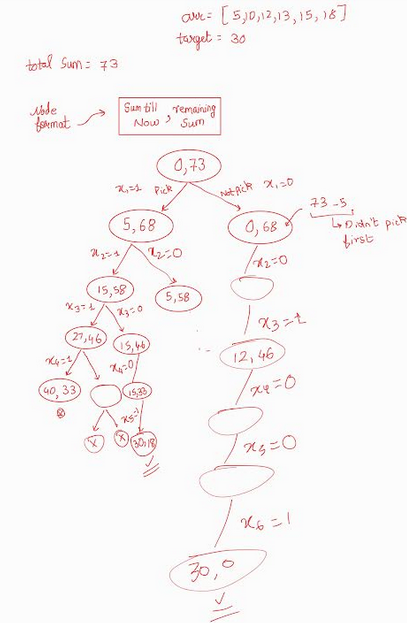 arr = [5,10,12,13,15,18]
target = 30
total Sum = 73
Node format
Sum till Now, remaining Sum
0,73
x₁=1 pick
Not pick x₁=0
73-5
Didn't pick first
5,68
0,68
x₂=1
x₂=0
x₂=0
15,58
5,58
x₃=1
x₃=0
x₃=1
27,46
15,46
12,46
x₄=1
x₄=0
x₄=0
40,33
15,33
x₅=1
x₅=0
x
x
30,18
x₆=1
30,0